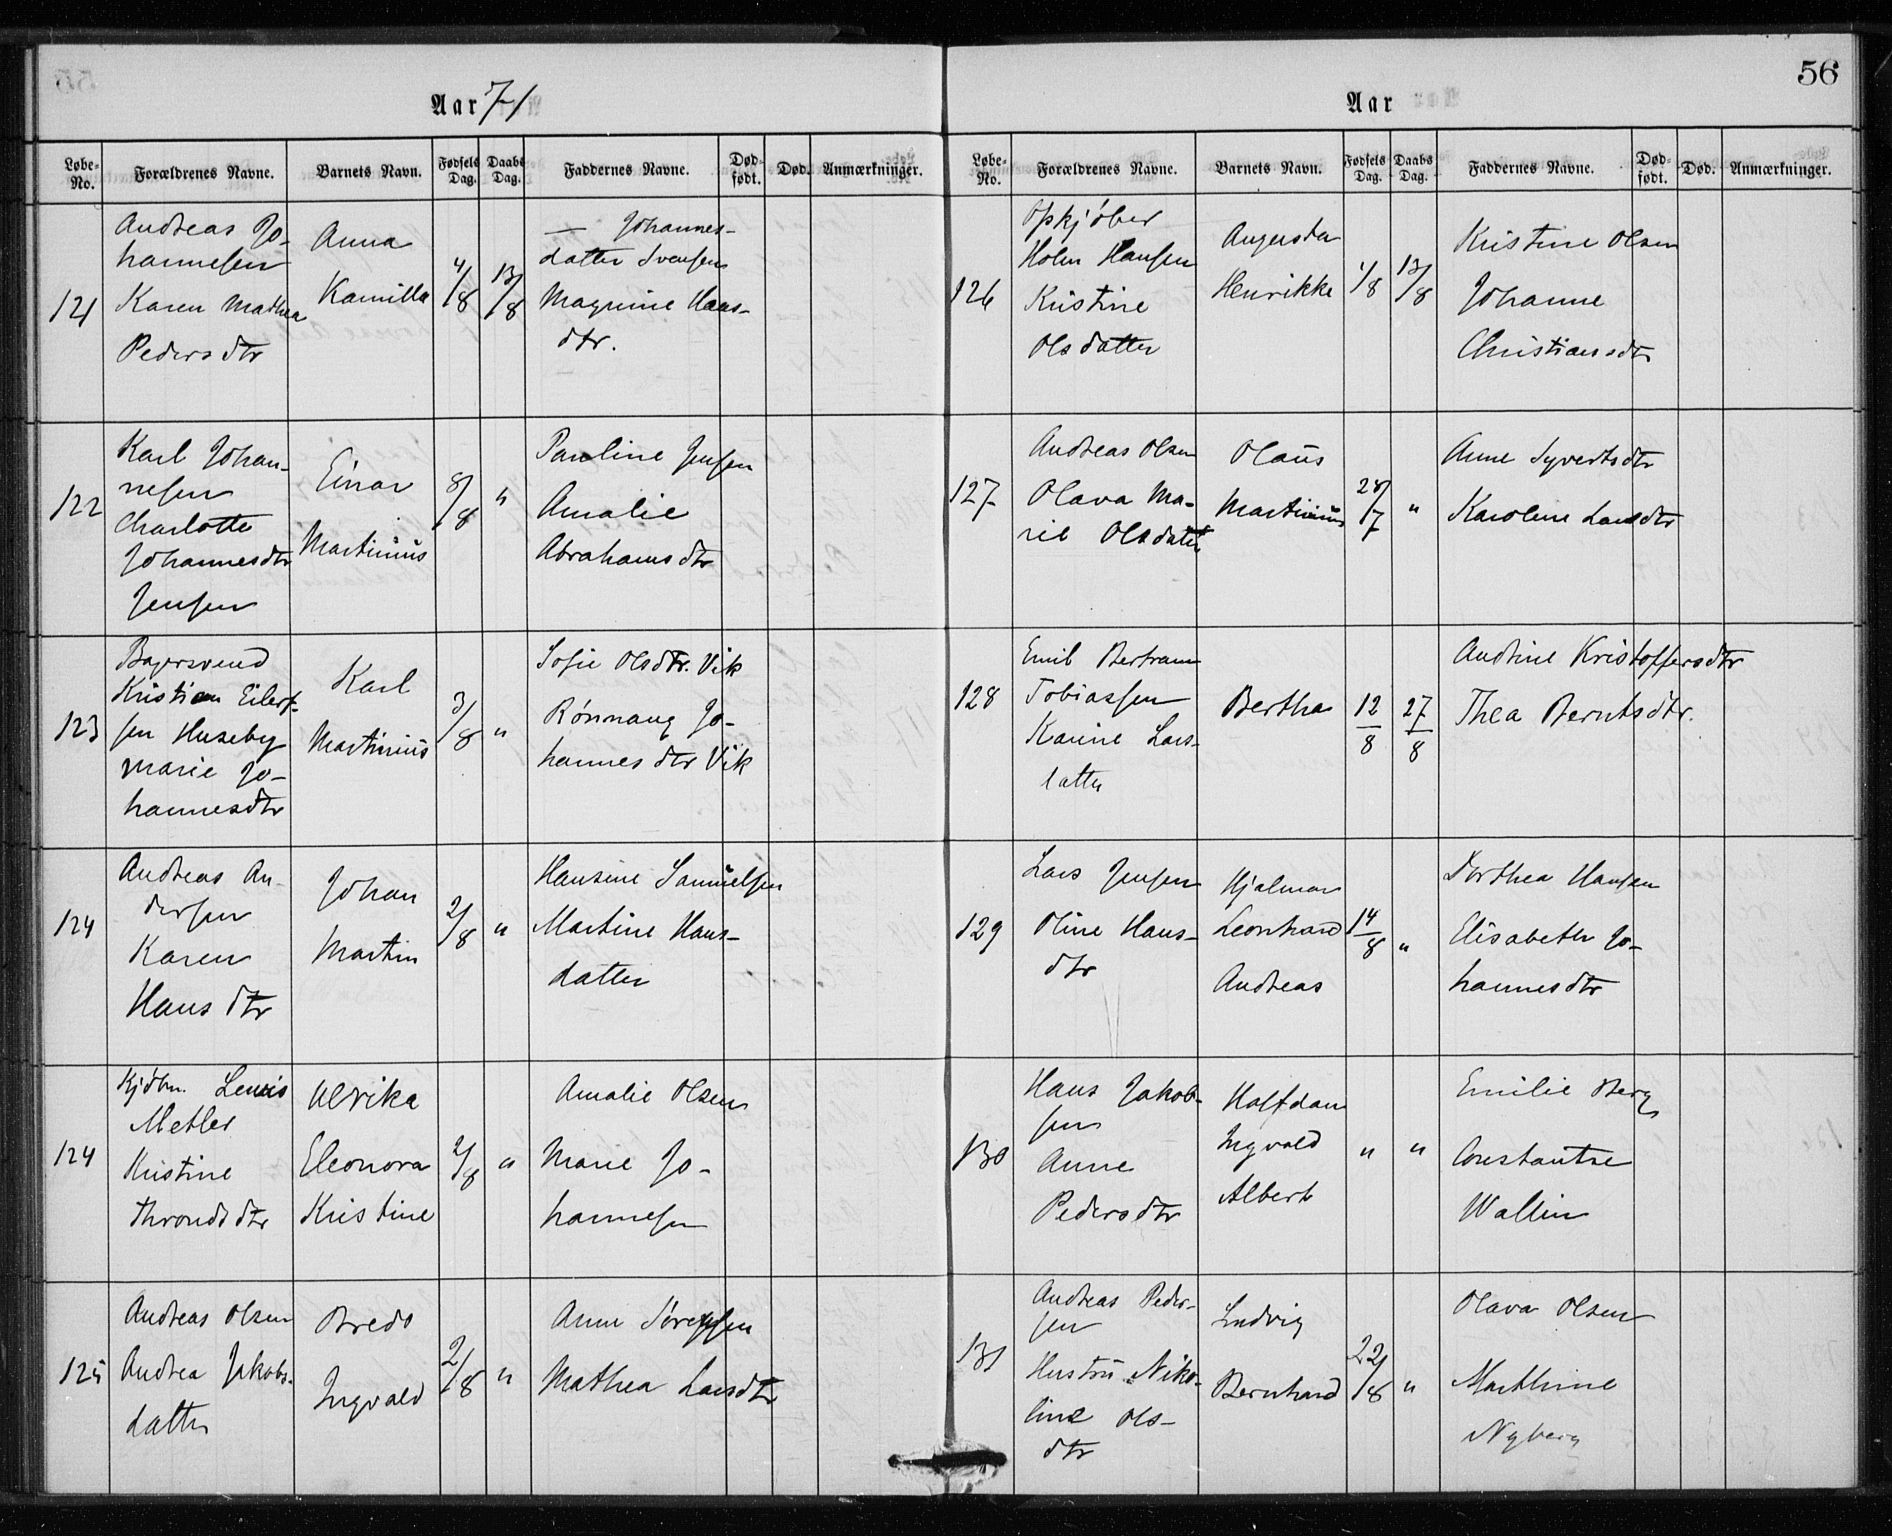 56
Aar 71
Løbe-No. Forældrenes Navne. Barnets Navn. Fødsels Dag. Daabs Dag. Faddernes Navne. Død-født. Død. Anmærkninger.
121
Andreas Jo-
hannesen
Karen Mathea
Pedersdtr
Anna
Kamilla
4/8
13/8
— Johannes-
datter Svensen
Magnine Hans-
dtr.
122
Karl Johan-
nesen
Charlotte
Johannesdtr
Jensen
Einar
Martinius
8/8
"
Pauline Jensen
Amalie
Abrahamsdtr
123
Kristian Eilert-
sen Huseby
Marie Jo-
hannesdtr
Karl
Martinius
3/8
"
Sofie Olsdtr. Vik
Rönnaug Jo-
hannesdtr Vik
124
Andreas An-
dersen
Karen
Hansdtr
Johan
Martin
2/8
"
Hansine Samuelsen
Martine Hans-
datter
124
Kjøbm. Lewis
Metler
Kristine
Throndsdtr
Ulrika
Eleonora
Kristine
2/8
"
Amalie Olsen
Marie Jo-
hannesen
125
Andreas Olsen
Andrea Jakobs-
datter
Bredo
Ingvald
2/8
"
Anne Sørensen
Mathea Larsdtr
Aar
Løbe-No. Forældrenes Navne. Barnets Navn. Fødsels Dag. Daabs Dag. Faddernes Navne. Død-født. Død. Anmærkninger.
126
Opkjøber
Holm Hansen
Kristine
Olsdatter
Augusta
Henrikke
1/8
13/8
Kristine Olsen
Johanne
Christiansdtr
127
Andreas Olsen
Olava Ma-
rie Olsdatter
Olaus
Martinius
28/7
"
Anne Syvertsdtr
Karoline Larsdtr
128
Emil Bertram
Tobiassen
Karine Lars-
datter
Bertha
12/8
27/8
Andrine Kristoffersdtr
Thea Berntsdtr.
129
Lars Jensen
Oline Hans-
dtr
Hjalmar
Leonhard
Andreas
14/8
"
Dorthea Hansen
Elisabeth Jo-
hannesdtr
130
Hans Jakob-
sen
Anne
Pedersdtr
Halfdan
Ingvald
Albert
"
"
Emilie Berg
Constantse
Wallin
131
Andreas Peder-
sen
Hustru Niko-
line Ols-
dtr
Ludvig
Bernhard
22/8
"
Olava Olsen
Mathine
Nyberg